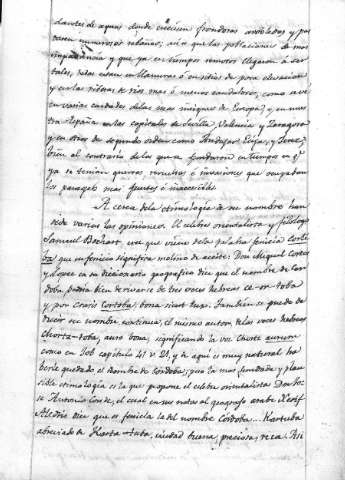 de aguas donde crecen frondosos arbolados y pas
tacen numerosos rebaños; asi es que las poblaciones de mas
importancia y que ya en tiempos remotos llegaron á ser
tales, estan en llanuras ó en sitios de poca elevacion
y en las riberas de rios mas ó menos caudalosos, como se ve
en varias ciudades de las mas insignes de Europa, y en nues
tra España en las capitales de Sevilla, Valencia y Zaragoza
y en otras de segundo orden como Andujar, Ecija, y Jerez,
bien al contrario de las que se fundaron en tiempos en q.e
ya se temian guerras, revueltas é invasiones que ocupaban
los parages mas fuertes é inaccesibles.
A cerca de la etimologia de su nombre han
sido varias las opiniones. El célebre orientalista y filólogo
Samuel Bochart, cree que viene de la palabra fenicia Corte
ba que en fenicio significa molino de aceite: Don Miguel Cortes
y Lopez en su diccionario geografico dice que el nombre de Cor
doba podria bien derivarse de tres voces hebreas ce-or-toba
y por crasis Cortoba, bona sicut lux. Tambien se puede de
ducir su nombre, continua el mismo autor, de las voces hebreas
Chorta-toba, auro bona, significando la voz Chorts aurum
como en Job capitulo 41 v. 21, y de aqui es muy natural ha
berle quedado el nombre de Córdoba; pero la mas fundada y plau
sible etimologia es la que propone el célebre orientalista Don Jo
sé Antonio Conde, el cual en sus notas al geografo arabe Xerif
Aledris dice que es fenicia la del nombre Córdoba... Kartuba
abreviado de Karta-tuba, ciudad buena, preciosa, rica. Asi